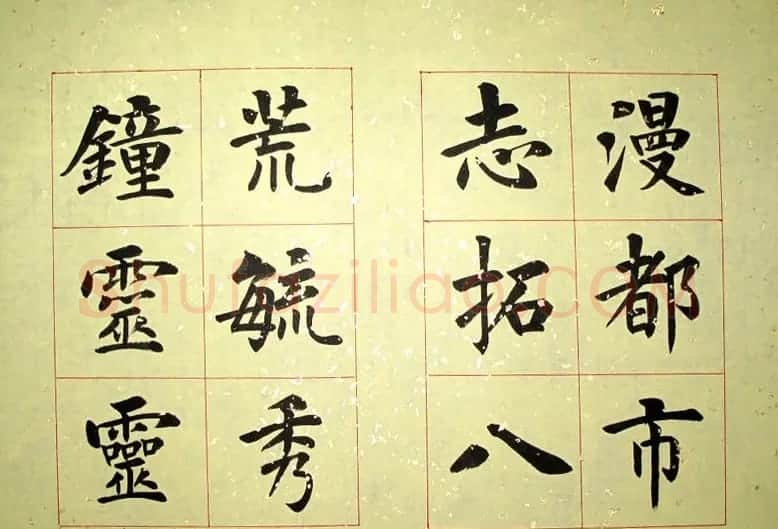 漫都市
志拓八
荒毓秀
鐘靈靈
Shufaziliao.COM